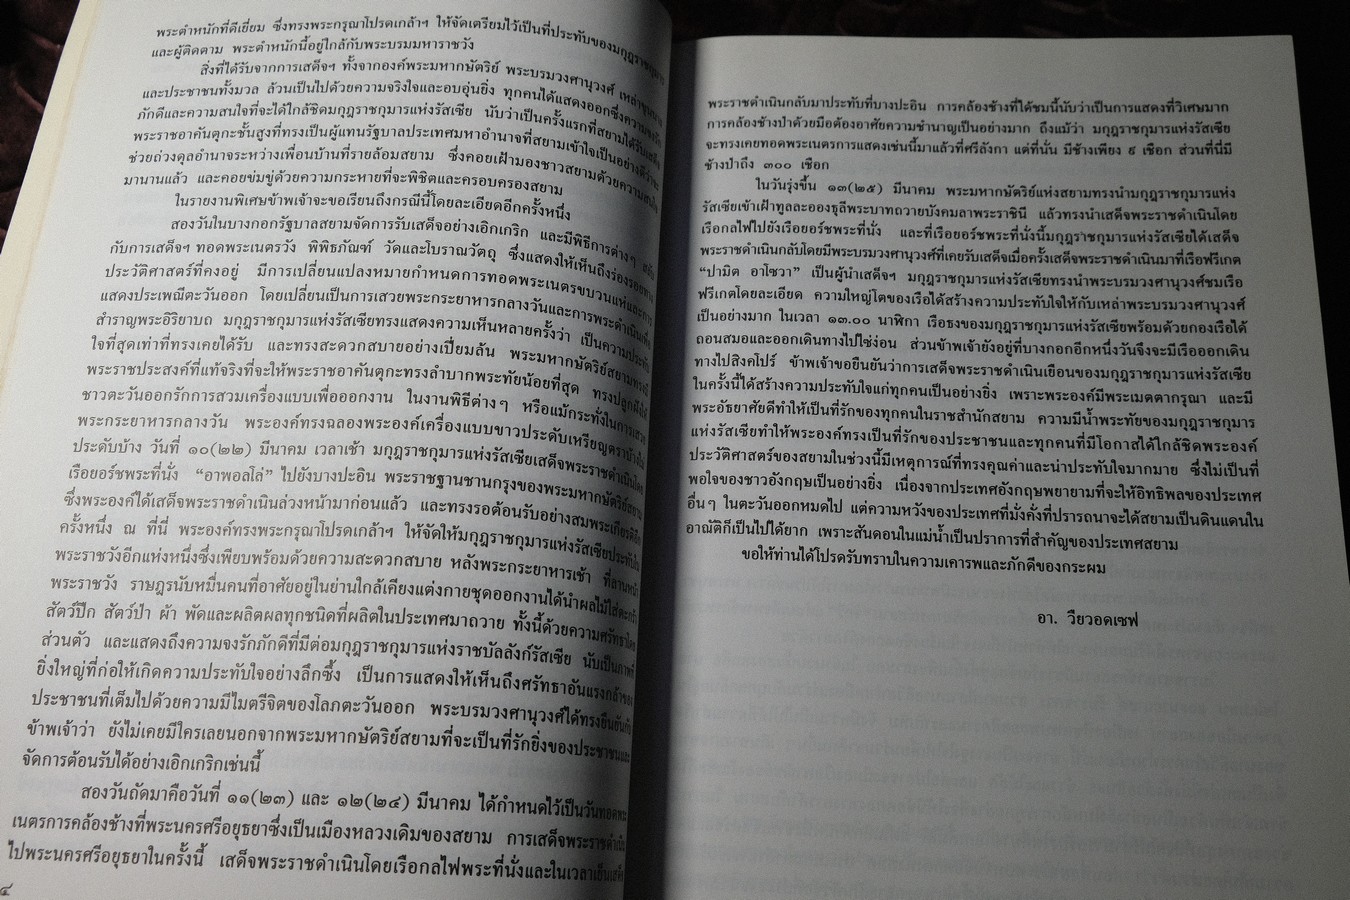 พระตำหนักที่ดีเยี่ยม ซึ่งทรงพระกรุณาโปรดเกล้าฯ ให้จัดเตรียมไว้เป็นที่ประทับของมกุฎราชกุมาร
และผู้ติดตาม พระตำหนักนี้อยู่ใกล้กับพระบรมมหาราชวัง
สิ่งที่ได้รับจากการเสด็จฯ ทั้งจากองค์พระมหากษัตริย์ พระบรมวงศานุวงศ์ เหล่าขุนนาง
และประชาชนทั้งมวล ล้วนเป็นไปด้วยความจริงใจและอบอุ่นยิ่ง ทุกคนได้แสดงออกซึ่งความจงรัก
ภักดีและความสนใจที่จะได้ใกล้ชิดมกุฎราชกุมารแห่งรัสเซีย นับว่าเป็นครั้งแรกที่สยามได้รับเสด็จ
พระราชอาคันตุกะชั้นสูงที่ทรงเป็นผู้แทนรัฐบาลประเทศมหาอำนาจที่สยามเข้าใจเป็นอย่างดีว่าจะ
ช่วยถ่วงดุลอำนาจระหว่างเพื่อนบ้านที่รายล้อมสยาม ซึ่งคอยเฝ้ามองชาวสยามด้วยความสนใจ
มานานแล้ว และคอยข่มขู่ด้วยความกระหายที่จะพิชิตและครอบครองสยาม
ในรายงานพิเศษข้าพเจ้าจะขอเรียนถึงกรณีนี้โดยละเอียดอีกครั้งหนึ่ง
สองวันในบางกอกรัฐบาลสยามจัดการรับเสด็จอย่างเอิกเกริก และมีพิธีการต่างๆ สลับ
กับการเสด็จฯ ทอดพระเนตรวัง พิพิธภัณฑ์ วัดและโบราณวัตถุ ซึ่งแสดงให้เห็นถึงร่องรอยทาง
ประวัติศาสตร์ที่คงอยู่ มีการเปลี่ยนแปลงหมายกำหนดการทอดพระเนตรขบวนแห่และการ
แสดงประเพณีตะวันออก โดยเปลี่ยนเป็นการเสวยพระกระยาหารกลางวันและการพระดำเนินเพื่อ
สำราญพระอิริยาบถ มกุฎราชกุมารแห่งรัสเซียทรงแสดงความเห็นหลายครั้งว่า เป็นความประทับ
ใจที่สุดเท่าที่ทรงเคยได้รับ และทรงสะดวกสบายอย่างเปี่ยมล้น พระมหากษัตริย์สยามทรงมี
พระราชประสงค์ที่แท้จริงที่จะให้พระราชอาคันตุกะทรงลำบากพระทัยน้อยที่สุด ทรงปลูกฝังให้
ชาวตะวันออกรักการสวมเครื่องแบบเพื่อออกงาน ในงานพิธีต่างๆ หรือแม้กระทั่งในการเสวย
พระกระยาหารกลางวัน พระองค์ทรงฉลองพระองค์เครื่องแบบขาวประดับเหรียญตราบ้างไม่
ประดับบ้าง วันที่ ๑๐(๒๒) มีนาคม เวลาเช้า มกุฎราชกุมารแห่งรัสเซียเสด็จพระราชดำเนินโดย
เรือยอร์ชพระที่นั่ง “อาพอลโล่” ไปยังบางปะอิน พระราชฐานชานกรุงของพระมหากษัตริย์สยาม
ซึ่งพระองค์ได้เสด็จพระราชดำเนินล่วงหน้ามาก่อนแล้ว และทรงรอต้อนรับอย่างสมพระเกียรติอีก
ครั้งหนึ่ง ณ ที่นี่ พระองค์ทรงพระกรุณาโปรดเกล้าฯ ให้จัดให้มกุฎราชกุมารแห่งรัสเซียประทับใน
พระราชวังอีกแห่งหนึ่งซึ่งเพียบพร้อมด้วยความสะดวกสบาย หลังพระกระยาหารเช้า ที่ลานหน้า
พระราชวัง ราษฎรนับหมื่นคนที่อาศัยอยู่ในย่านใกล้เคียงแต่งกายชุดออกงานได้นำผลไม้ใส่ตะกร้า
สัตว์ปีก สัตว์ป่า ผ้า พัดและผลิตผลทุกชนิดที่ผลิตในประเทศมาถวาย ทั้งนี้ด้วยความศรัทธาโดย
ส่วนตัว และแสดงถึงความจงรักภักดีที่มีต่อมกุฎราชกุมารแห่งราชบัลลังก์รัสเซีย นับเป็นภาพที่
ยิ่งใหญ่ที่ก่อให้เกิดความประทับใจอย่างลึกซึ้ง เป็นการแสดงให้เห็นถึงศรัทธาอันแรงกล้าของ
ประชาชนที่เต็มไปด้วยความมีไมตรีจิตของโลกตะวันออก พระบรมวงศานุวงศ์ได้ทรงยืนยันกับ
ข้าพเจ้าว่า ยังไม่เคยมีใครเลยนอกจากพระมหากษัตริย์สยามที่จะเป็นที่รักยิ่งของประชาชนและ
จัดการต้อนรับได้อย่างเอิกเกริกเช่นนี้
สองวันถัดมาคือวันที่ ๑๑(๒๓) และ ๑๒(๒๔) มีนาคม ได้กำหนดไว้เป็นวันทอดพระ
เนตรการคล้องช้างที่พระนครศรีอยุธยาซึ่งเป็นเมืองหลวงเดิมของสยาม การเสด็จพระราชดำเนิน
ไปพระนครศรีอยุธยาในครั้งนี้ เสด็จพระราชดำเนินโดยเรือกลไฟพระที่นั่งและในเวลาเย็นเสด็จ
พระราชดำเนินกลับมาประทับที่บางปะอิน การคล้องช้างที่ได้ชมนี้นับว่าเป็นการแสดงที่วิเศษมาก
การคล้องช้างป่าด้วยมือต้องอาศัยความชำนาญเป็นอย่างมาก ถึงแม้ว่า มกุฎราชกุมารแห่งรัสเซีย
จะทรงเคยทอดพระเนตรการแสดงเช่นนี้มาแล้วที่ศรีลังกา แต่ที่นั่น มีช้างเพียง ๙ เชือก ส่วนที่นี่มี
ช้างป่าถึง ๓๐๐ เชือก
ในวันรุ่งขึ้น ๑๓(๒๕) มีนาคม พระมหากษัตริย์แห่งสยามทรงนำมกุฎราชกุมารแห่ง
รัสเซียเข้าเฝ้าทูลละอองธุลีพระบาทถวายบังคมลาพระราชินี แล้วทรงนำเสด็จพระราชดำเนินโดย
เรือกลไฟไปยังเรือยอร์ชพระที่นั่ง และที่เรือยอร์ชพระที่นั่งนี้มกุฎราชกุมารแห่งรัสเซียได้เสด็จ
พระราชดำเนินกลับโดยมีพระบรมวงศานุวงศ์ที่เคยรับเสด็จเมื่อครั้งเสด็จพระราชดำเนินมาที่เรือฟรีเกต
“ปามิต อาโซวา” เป็นผู้นำเสด็จฯ มกุฎราชกุมารแห่งรัสเซียทรงนำพระบรมวงศานุวงศ์ชมเรือ
ฟรีเกตโดยละเอียด ความใหญ่โตของเรือได้สร้างความประทับใจให้กับเหล่าพระบรมวงศานุวงศ์
เป็นอย่างมาก ในเวลา ๑๓.๐๐ นาฬิกา เรือธงของมกุฎราชกุมารแห่งรัสเซียพร้อมด้วยกองเรือได้
ถอนสมอและออกเดินทางไปไซ่ง่อน ส่วนข้าพเจ้ายังอยู่ที่บางกอกอีกหนึ่งวันจึงจะมีเรือออกเดิน
ทางไปสิงคโปร์ ข้าพเจ้าขอยืนยันว่าการเสด็จพระราชดำเนินเยือนของมกุฎราชกุมารแห่งรัสเซีย
ในครั้งนี้ได้สร้างความประทับใจแก่ทุกคนเป็นอย่างยิ่ง เพราะพระองค์มีพระเมตตากรุณา และมี
พระอัธยาศัยดีทำให้เป็นที่รักของทุกคนในราชสำนักสยาม ความมีน้ำพระทัยของมกุฎราชกุมาร
แห่งรัสเซียทำให้พระองค์ทรงเป็นที่รักของประชาชนและทุกคนที่มีโอกาสได้ใกล้ชิดพระองค์
ประวัติศาสตร์ของสยามในช่วงนี้มีเหตุการณ์ที่ทรงคุณค่าและน่าประทับใจมากมาย ซึ่งไม่เป็นที่
พอใจของชาวอังกฤษเป็นอย่างยิ่ง เนื่องจากประเทศอังกฤษพยายามที่จะให้อิทธิพลของประเทศ
อื่นๆ ในตะวันออกหมดไป แต่ความหวังของประเทศที่มั่งคั่งที่ปรารถนาจะได้สยามเป็นดินแดนใน
อาณัติก็เป็นไปได้ยาก เพราะสันดอนในแม่น้ำเป็นปราการที่สำคัญของประเทศสยาม
ขอให้ท่านได้โปรดรับทราบในความเคารพและภักดีของกระผม
อา. วียวอดเซฟ